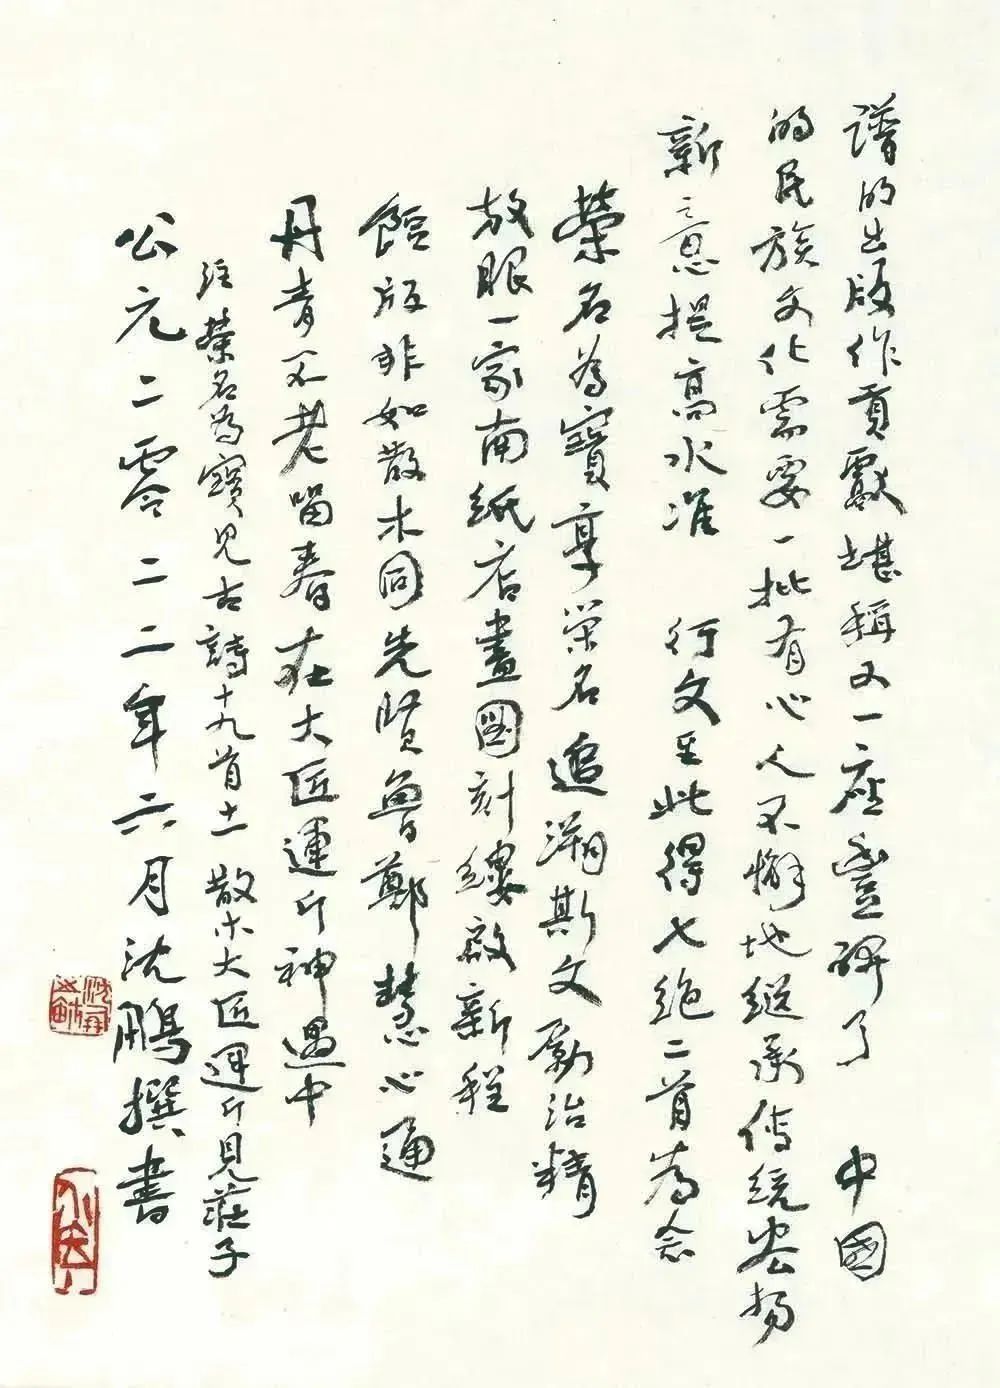 譜的出版作貢獻堪稱又一座豐碑了 中國
的民族文化需要一批有心人不懈地継承传统扬
新意提高水准 行文至此得七绝二首为念
榮名為寶享栄名追溯斯文勵治精
放眼一家南纸店畫圖刻镂啟新程
餖版非如散木同先贤魯鄭慧心通
丹青不老留春在大匠運斤神遇中
注榮名為寶見古詩十九首十一 散木大匠運斤見莊子
公元二零二二年六月沈鵬撰書